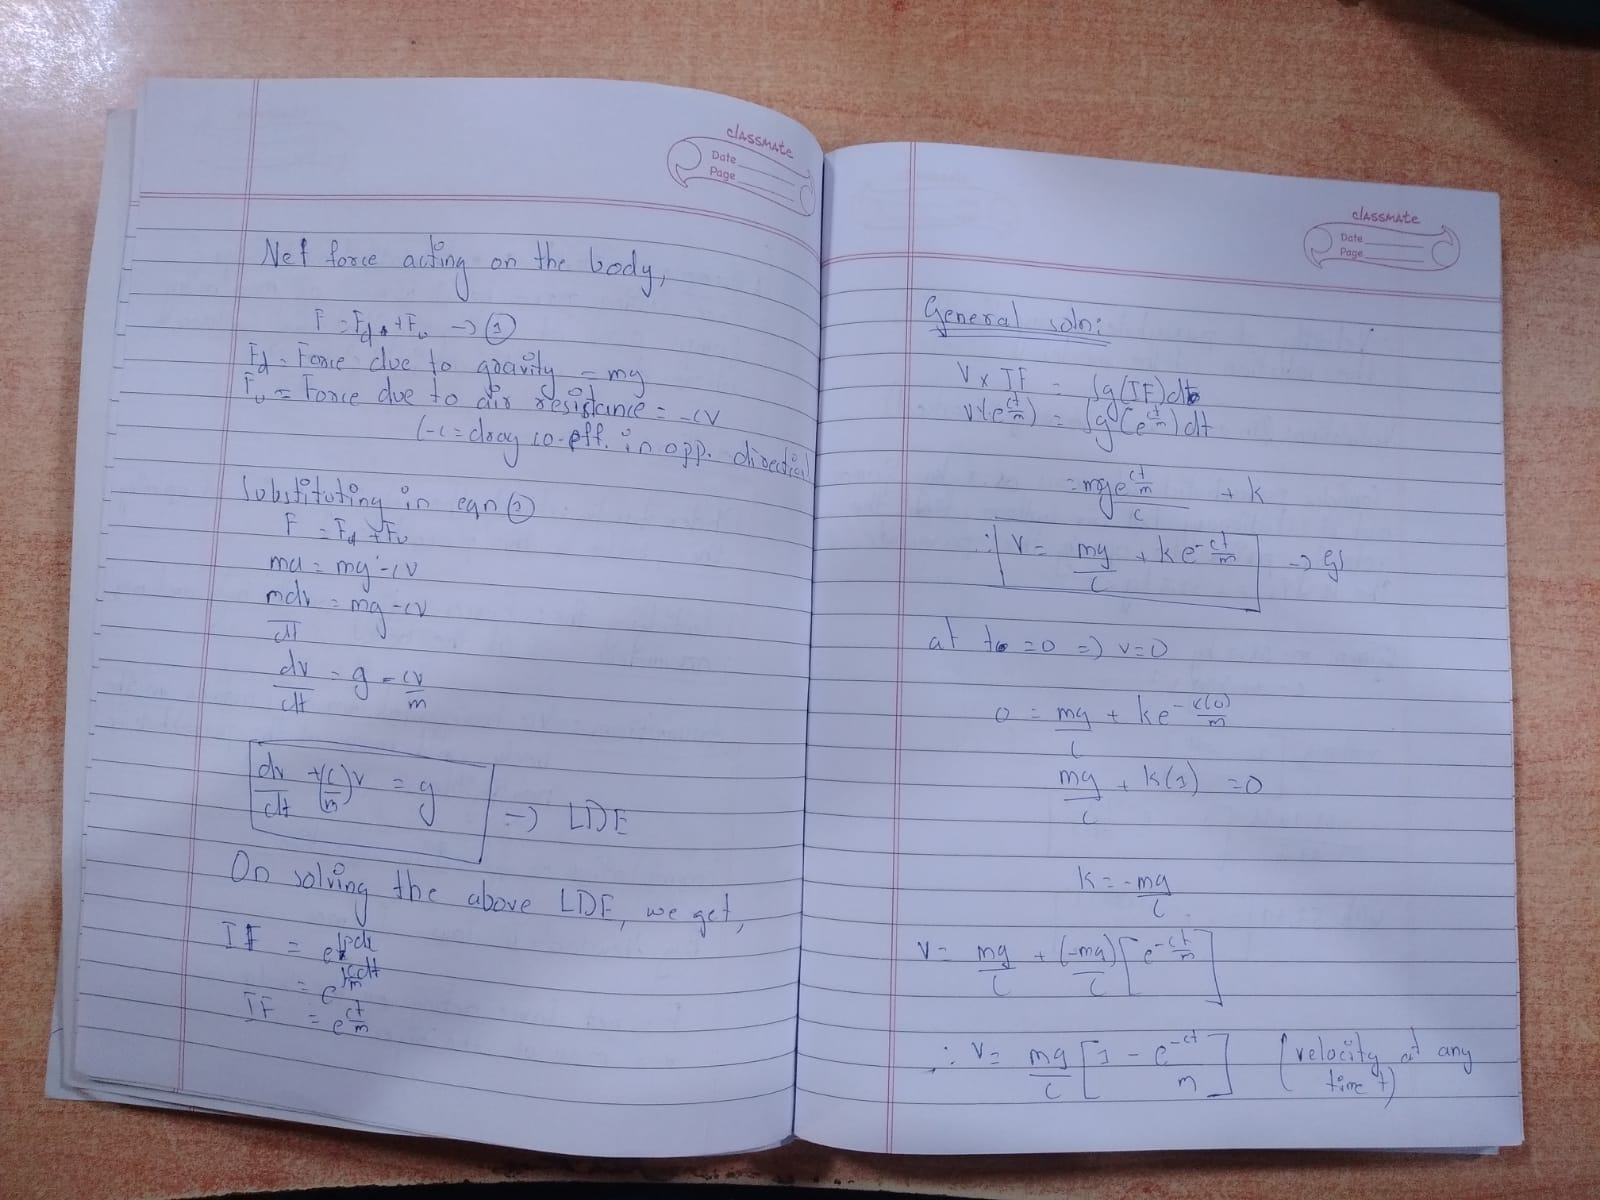 classmate
Date
Page
Net force acting on the body,
F = Fd + Fv → ①
Fd = Force due to gravity = mg
Fv = Force due to air resistance = -cv
(-c = drag co-eff. in opp. direction)
Substituting in eqn ①
F = Fd + Fv
ma = mg - cv
mdv/dt = mg - cv
dv/dt = g - cv/m
dv/dt + (c/m)v = g → LDE
On solving the above LDE, we get,
IF = e^∫pdx
= e^∫c/m dt
IF = e^ct/m
classmate
Date
Page
General soln:
V x IF = ∫g(IF)dt
v x (e^ct/m) = ∫g(e^ct/m)dt
= mge^ct/m / c + k
∴ V = mg/c + ke^-ct/m → GS
at t = 0 => v=0
0 = mg/c + ke^-c(0)/m
mg/c + k(1) = 0
k = -mg/c
V = mg/c + (-mg/c)[e^-ct/m]
∴ V = mg/c [1 - e^-ct/m] (velocity at any
time t)